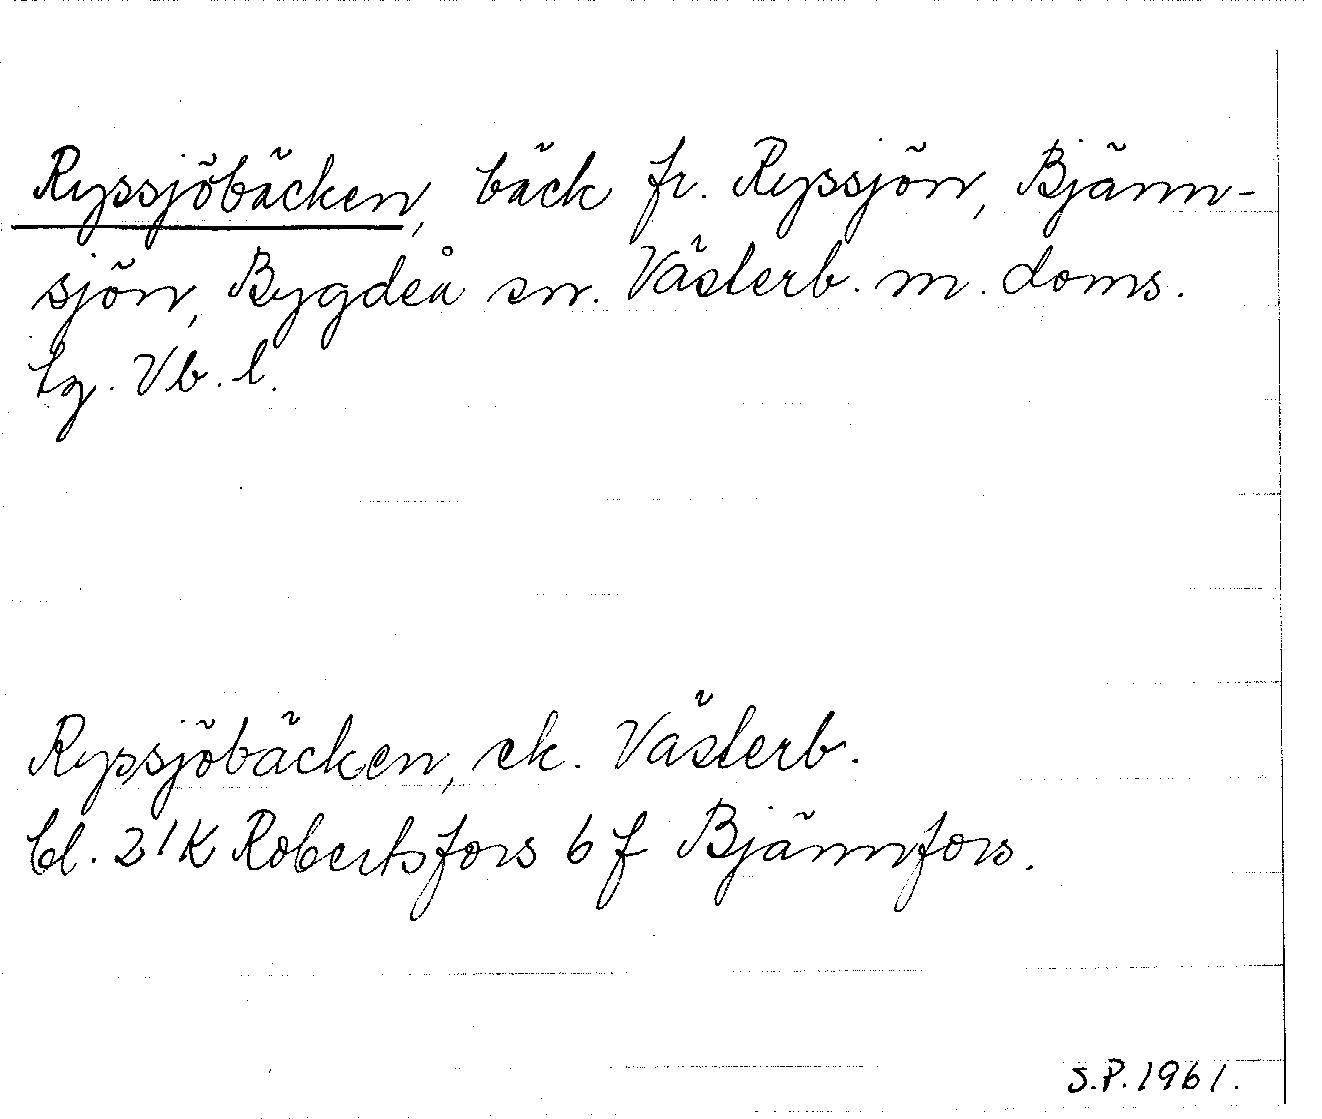 Ryssjöbäcken, bäck fr. Ryssjön, Bjänn-
sjön, Bygdeå sn. Västerb. m. doms.
tg. Vb. l.
Ryssjöbäcken, ek. Västerb.
bl. 21K Robertsfors 6 f Bjännfors.
S.P. 1961.